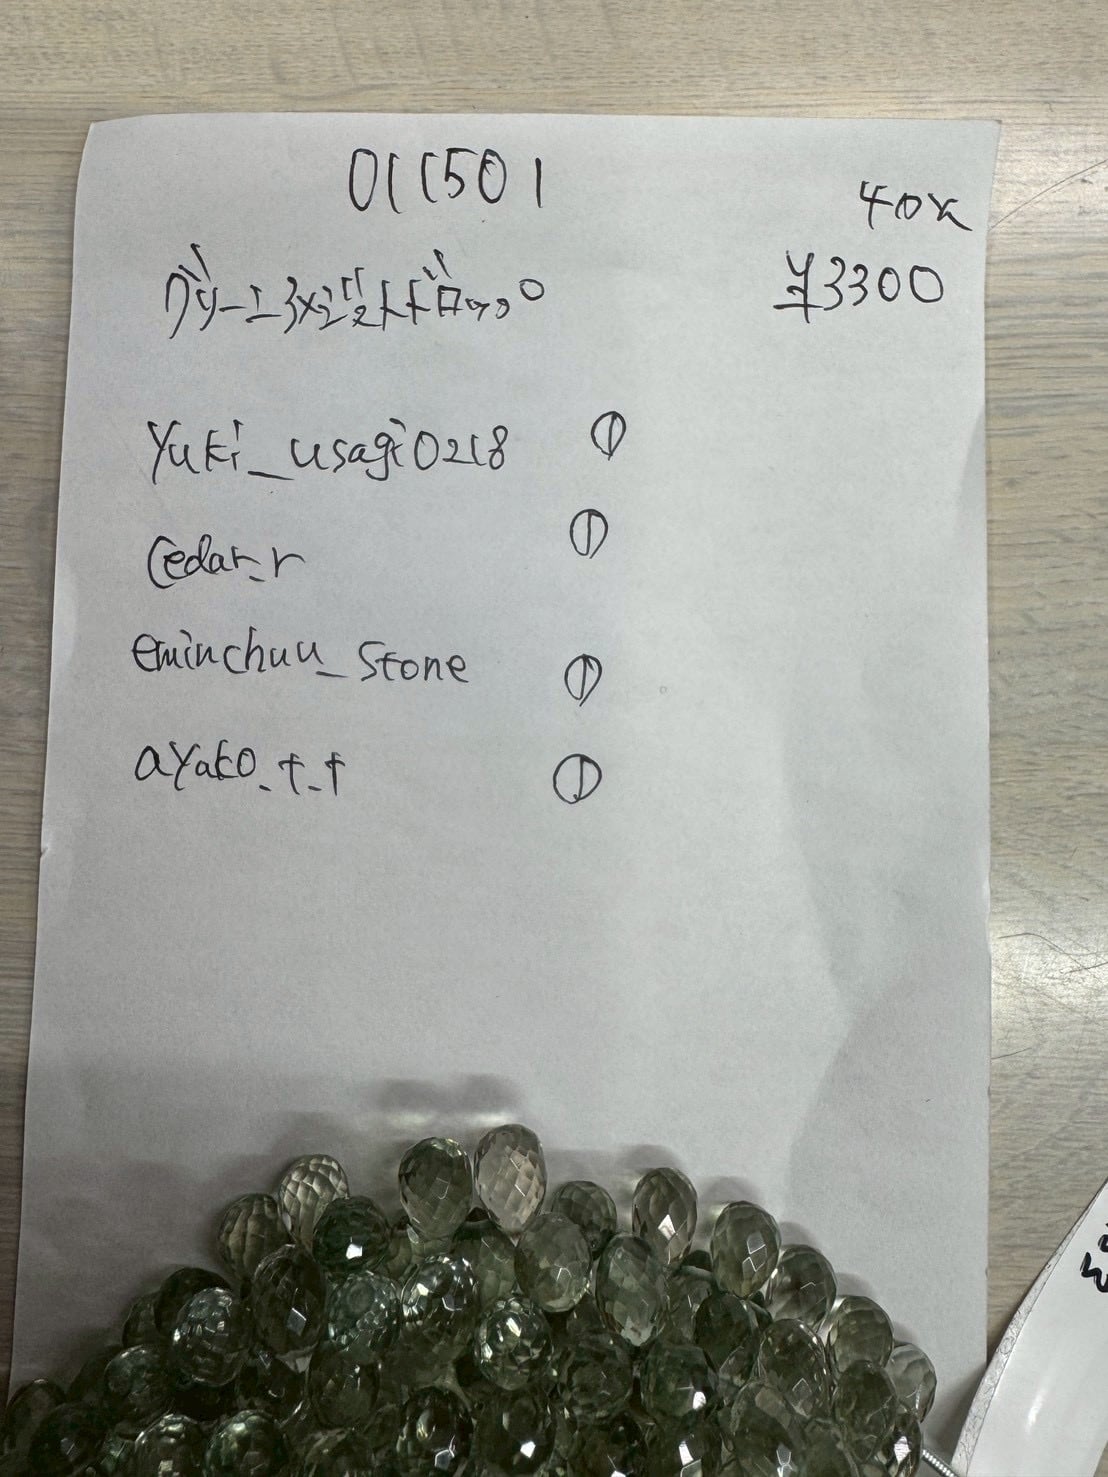 011501
40x
グリーンアメジストドロップ
¥3300
Yuki_usagi0218 ①
Cedar_r ①
eminchuu_stone ①
ayako_t_t ①